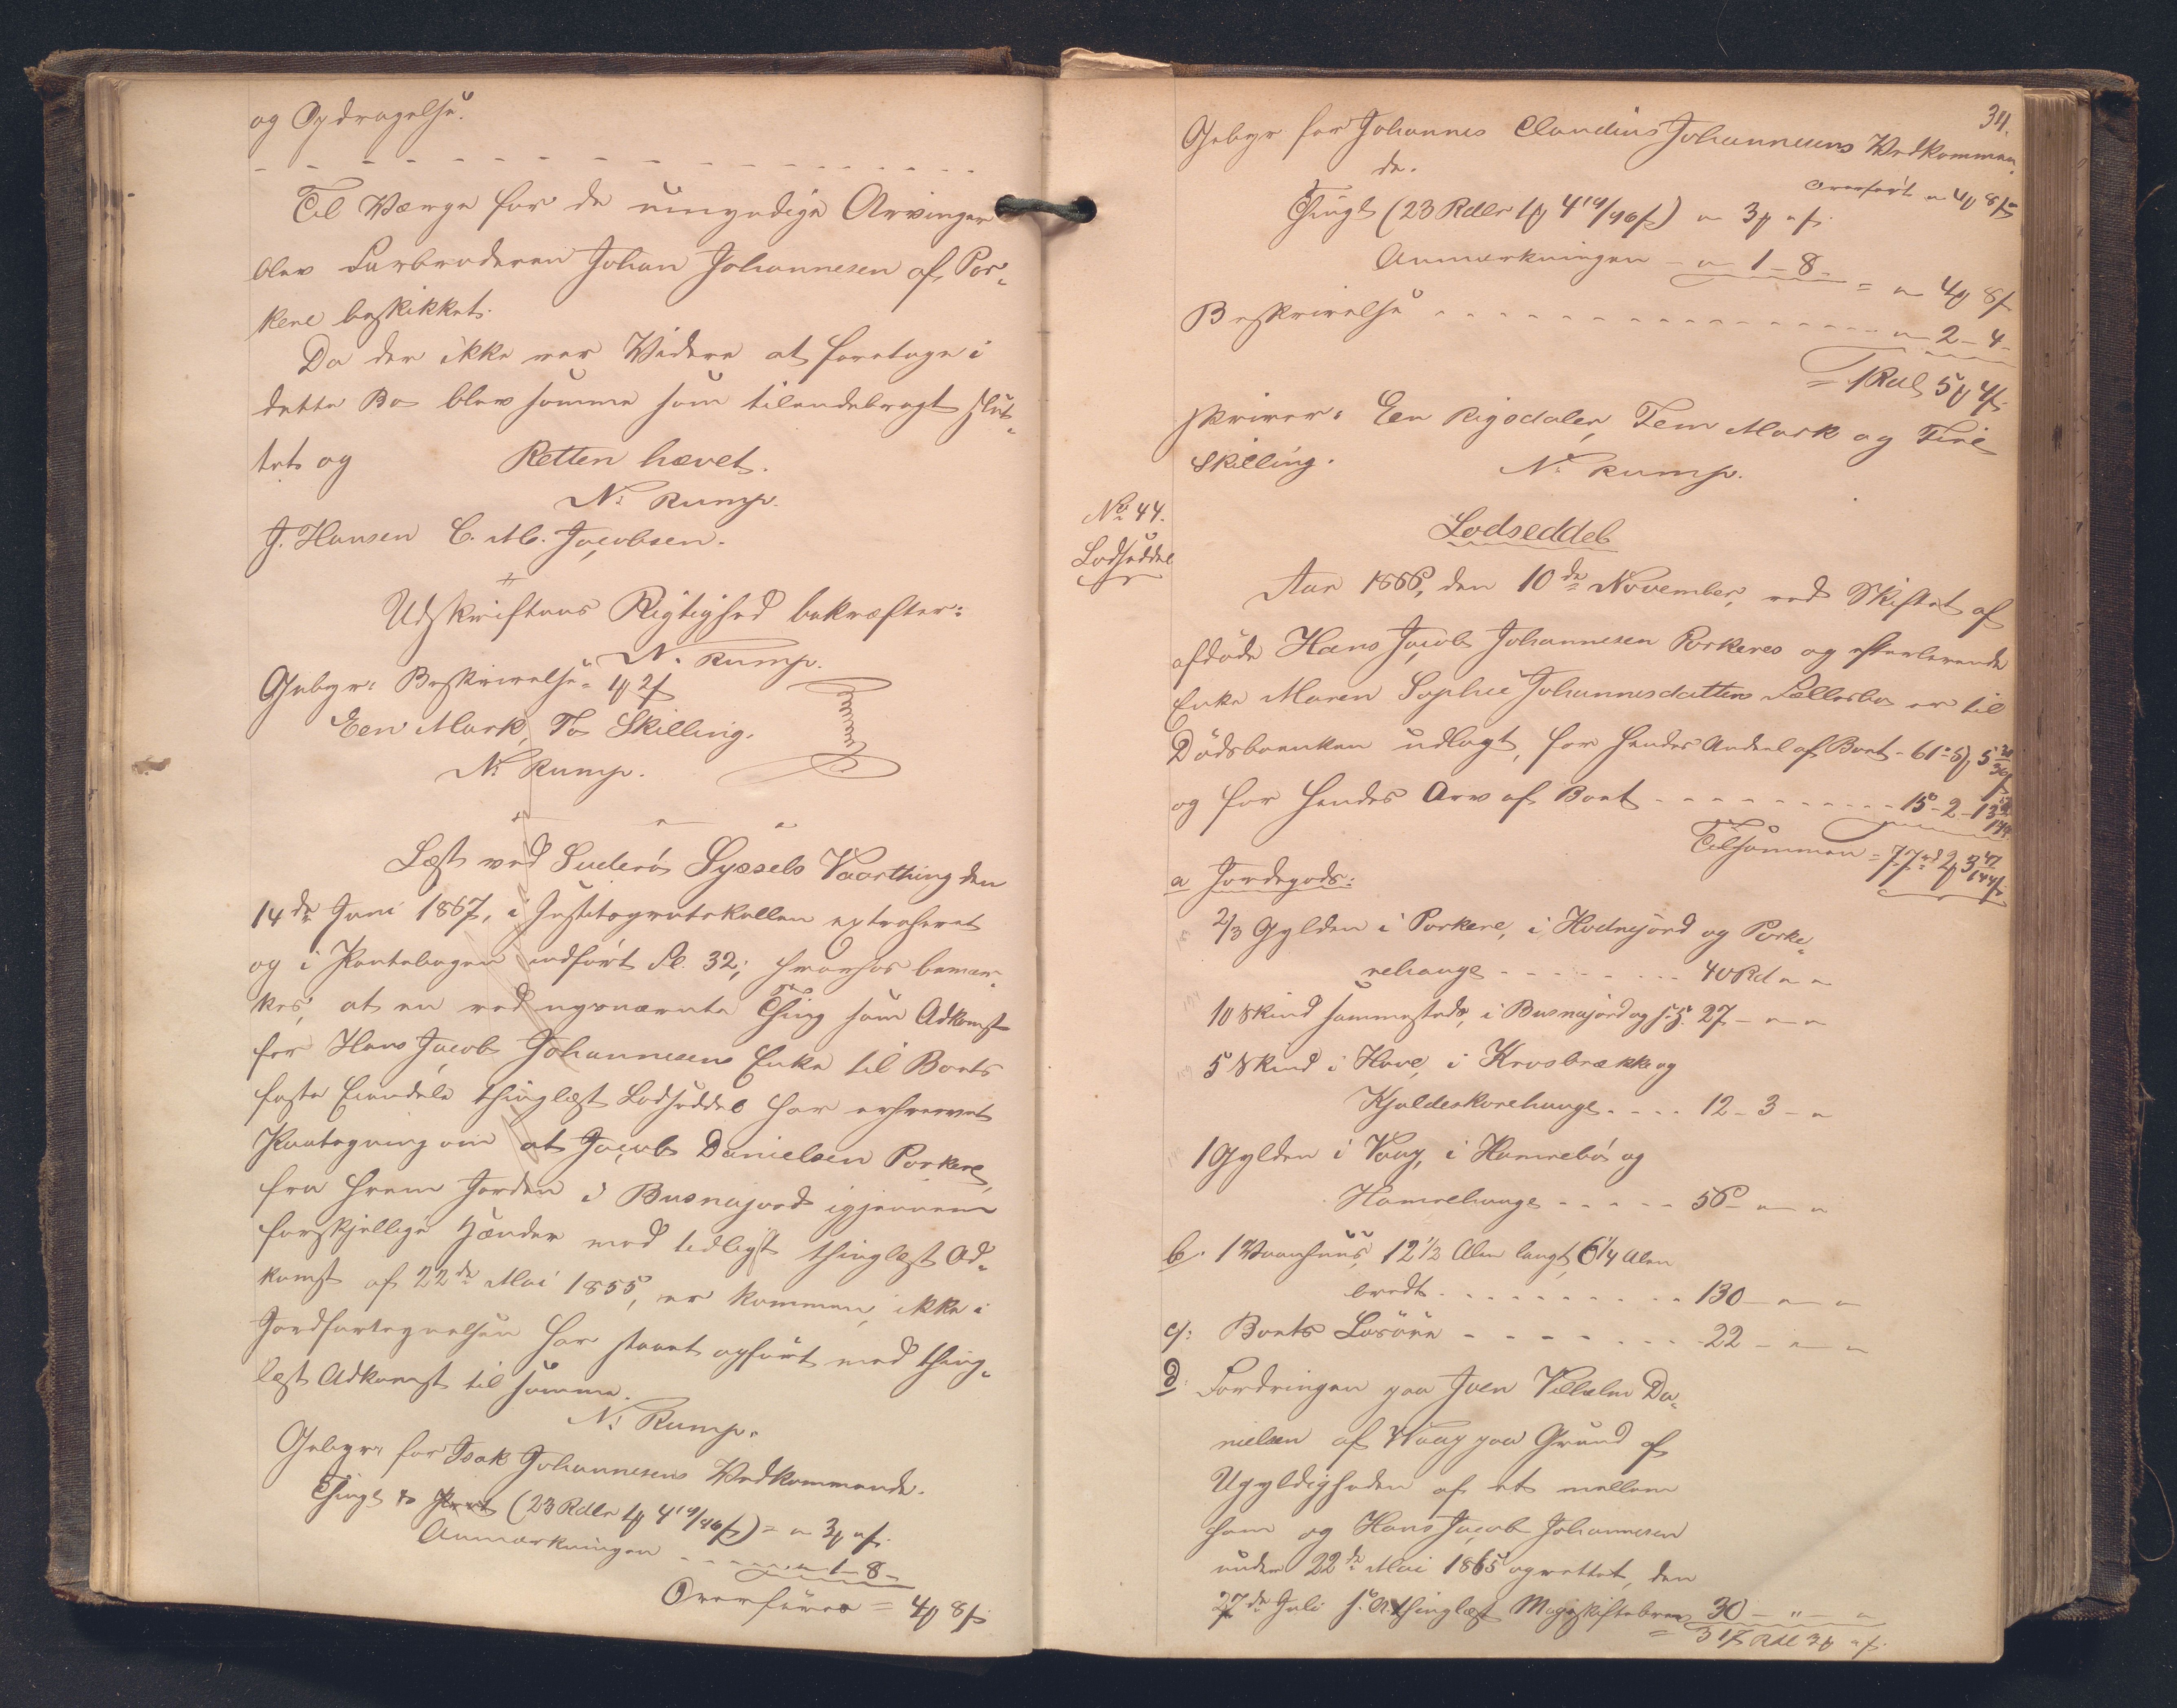 og Opdragelse.
Til Værge for de umyndige Arvinger
blev Farbroderen Johan Johannesen af Por-
kere beskikket.
Da der ikke var Videre at foretage i
dette Bo blev samme som tilendebragt slut-
tet og Retten hævet.
N. Rump.
J. Hansen C. M. Jacobsen.
Udskriftens Rigtighed bekræfter:
N. Rump.
Gebyr: Beskrivelse = 1 ꝳ 2 ß
Een Mark, To Skilling.
N. Rump.
Læst ved Suderø Syssels Vaarthing den
14de Juni 1867, i Justitsprotokollen extraheret
og i Pantebogen indført Fol. 32; hvorhos bemær-
kes, at en ved nysnævnte Thing som Adkomst
for Hans Jacob Johannesens Enke til Boets
faste Eiendele thinglæst Lodseddel har erhvervet
Paategning om at Jacob Danielsen Porkere,
fra hvem Jorden i Busnajord igjennem
forskjellige Hænder med tidligst thinglæst Ad-
komst af 22de Mai 1855, er kommen, ikke i
Jordfortegnelsen har staaet opført med thing-
læst Adkomst til samme.
N. Rump.
Gebyr: for Isak Johannesens Vedkommende.
Thingl (23 Rdlr 1 ꝳ 4 19/46 ß) = " 3 ꝳ " ß
Anmærkningen - - - " 1 - 8 -
Overføres = 4 ꝳ 8 ß
34.
Gebyr for Johannes Claudius Johannesens Vedkommen-
de. Overført " 4 ꝳ 8 ß
Thingl (23 Rdlr 1 ꝳ 4 19/46 ß) " 3 ꝳ " ß
Anmærkningen - " 1 - 8 - = " 4 ꝳ 8 ß
Beskrivelse - - - " 2 - 4 -
= 1 Rdl 5 ꝳ 4 ß
skriver: Een Rigsdaler, Fem Mark og Fire
Skilling. N. Rump.
No 44.
Lodseddel
Lodseddel
Aar 1866, den 10de November, ved Skiftet af
afdøde Hans Jacob Johannesen Porkeres og efterlevende
Enke Maren Sophie Johannesdatters Fællesbo er til
Dødsboenken udlagt, for hendes Andeel af Boet - 61 - 5 ꝳ 5
og for hendes Arv af Boet - - - 15 - 2 - 13
Tilsammen = 77 rd 2 ꝳ 3 47/144 ß
a Jordegods:
2/3 Gylden i Porkere, i Hodnejord og Porke-
rehauge - - - 40 Rd " "
10 Skind sammesteds, i Busnajord og s. H. 27 - " - "
5 Skind i Hove, i Krosbrække og
Kjeldeskorehauge - - - 12 - 3 - "
1 Gylden i Vaag, i Hamrebø og
Hamrehauge - - - 56 - " - "
b. 1 Vaanhuus, 12 1/2 Alen langt, 6 1/4 Alen
bredt - - - 130 - " - "
c: Boets Løsøre - - - 22 - " - "
d: Fordringen paa Joen Vilhelm Da-
nielsen af Vaag paa Grund af
Ugyldigheden af et mellem
ham og Hans Jacob Johannesen
under 22de Mai 1865 oprettet, den
27de Juli s. A. thinglæst Mageskiftebrev 30 - " - "
= 317 Rdl 3 ꝳ " ß